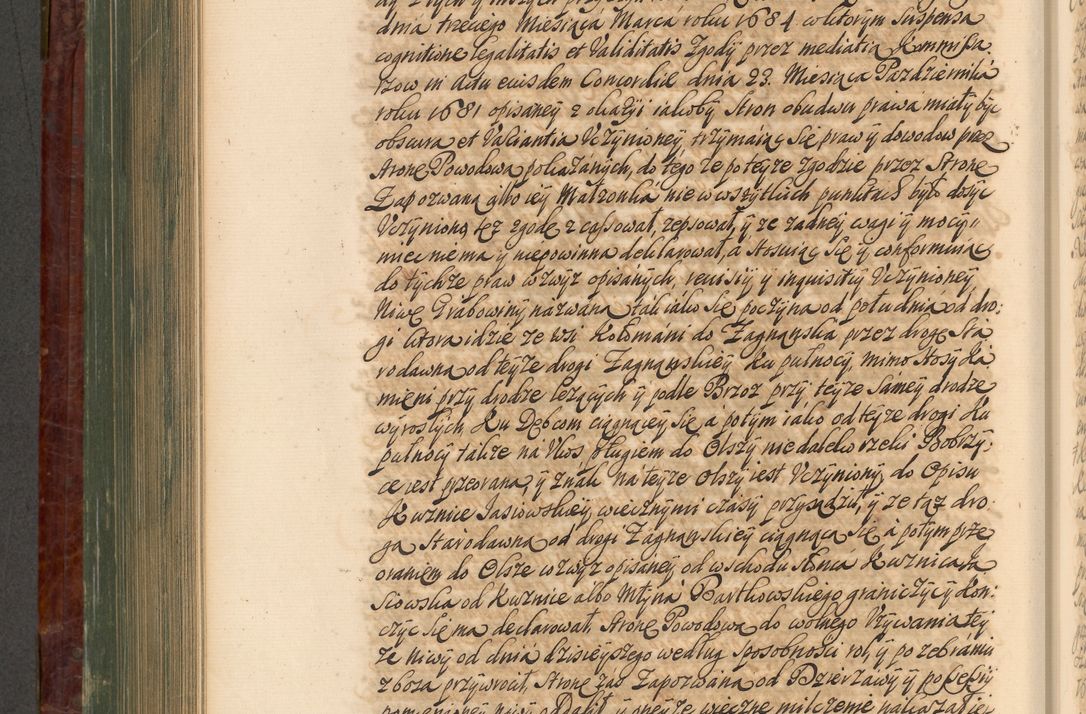 dnia trzeciego Miesiąca Marca roku 1684 wktorym Suspensa
cognitione legalitatis et Validitatis Zgody przez mediatią Kommissa
rzow in Actu eiusdem Concordiæ dnia 23. Miesiąca Pazdziernika
roku 1681 opisaney z okazyi iakoby Stron obudwu prawa miały być
obscura et Valiantia Uczynioney, trzymaiąc się praw y dowodow prze
Stronę Powodową pokazanych, do tego ze po teyze zgodzie przez Stronę
Zapozwaną albo iey Małzonka nie we wszytkich punktach było dosyc
Uczyniono, tęż zgodę z cassował, zepsował, y ze zadney wagi y mocy
miec niema y niepowinna deklarował, a stosuiąc się y conformuiąc
do tychze praw wzwyz opisanych, rewisiy y inquisitiy Uczynioney
Niwę Grabowiny nazwaną tak iako się poczyna od południa od dro:
gi ktora idzie ze wsi Kołomani do Zagnanska przez drogę Sta
rodawną od teyze drogi Zagnanskiey ku pułnocy, mimo Stosy Ka
mieni przy drodze lezących y podle Brzoz przy teyze samey drodze
wyrosłych Ku Dębcom ciągnącey się, a potym iako od teyze drogi Ku
pułnocy takze na Ukos pługiem do Olszy niedaleko rzeki Bobrzy:
ce iest przeorana, y znak na teyze Olszy iest Uczyniony, do Opisu
Kuznice Jasiowskiey, wiecznymi czasy przysądził, y ze taz dro
ga Starodawna od drogi Zagnanskiey ciągnąca się a potym prze
oraniem do Olsze wzwyz opisaney od wschodu słonca Kuznica Ja
siowska od Kuznice albo Młyna Bartkowskiego graniczyc y kon:
czyc się ma declarował, Stronę Powodową do wolnego Uzywania tey
ze niwy od dnia dzisieyszego według sposobnosci roli, y po zebraniu
zboza przywrocił, Stronę zas Zapozwaną od Dzierzawy y possessiy
pomienioney niwy oddalił, y oneyze wieczne milczenie nakazał iey